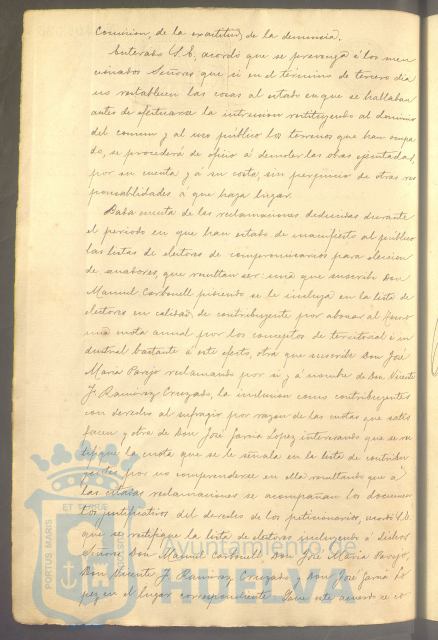 Comision, de la exactitud de la denuncia.
Enterado S.E. acordó que se prevenga á los men
cionados Señores que si en el término de tercero dia
no restablecen las cosas al estado en que se hallaban
antes de efectuarse la intrusion restituyendo al dominio
del comun y al uso público los terrenos que han ocupa
do, se procederá de oficio á demoler las obras ejecutadas
por su cuenta y á su costa, sin perjuicio de otras res
ponsabilidades á que haya lugar.
Dada cuenta de las reclamaciones deducidas durante
el periodo en que han estado de manifiesto al público
las listas de electores de compromisarios para eleccion
de senadores, que resultan ser: una que suscribe Don
Manuel Carbonell pidiendo se le incluya en la lista de
electores en calidad de contribuyente por abonar al Tesoro
una cuota anual por los conceptos de territorial é in
dustrial bastante á este efecto, otra que suscribe Don José
Maria Parejo reclamando por si y á nombre de Don Vicente
J. Ramirez Cruzado, la inclusion como contribuyentes
con derecho al sufragio por razon de las cuotas que satis
facen y otra de Don José Garcia Lopez interesando que se rec
tifique la cuota que se le señala en la lista de contribu
yentes por no comprenderse en ella resultando que á
las citadas reclamaciones se acompañan los documen
tos justificativos del derecho de los peticionarios, acordó S.E.
que se rectifique la lista de electores incluyendo á dichos
Señores Don Manuel Carbonell Don José Maria Parejo,
Don Vicente J. Ramirez Cruzado y Don José Garcia Lo
pez en el lugar correspondiente. Que este acuerdo se co
ET TERRAE
PORTUS MARIS
CUSTODIA
Ayuntamiento de
HUELVA